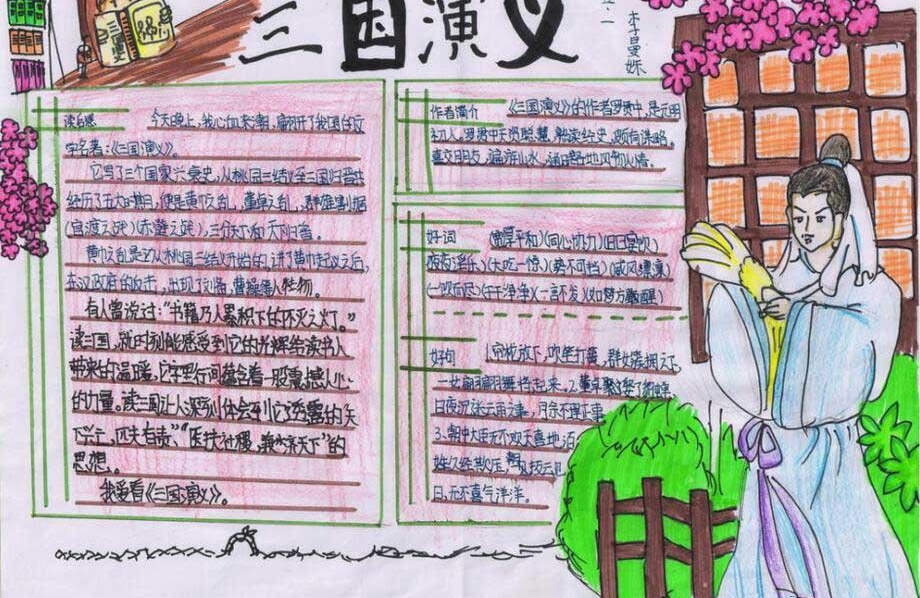 三国演义
李曼姝
读后感 今天晚上,我心血来潮,翻开了我国的文
学名著:《三国演义》。
它写了三个国家兴衰史,从桃园三结义至三国归晋共
经历了五大时期,便是黄巾之乱,董卓之乱,群雄割据
(官渡之战)(赤壁之战),三分天下和天下归晋。
黄巾之乱是从桃园三结义开始的,讲了黄巾起义之后,
政府的反击,出现了刘备,曹操等人物。
有人曾说过:“书籍乃人累积下的不灭之灯。”
读三国,就时刻能感受到它的光辉给读书人
带来的温暖,它字里行间蕴含着一股震撼人心
的力量。读三国让人深刻体会到它透露的天
下兴亡,匹夫有责”,“匡扶社稷,兼济天下”的
思想。
我爱看《三国演义》。
作者简介 《三国演义》的作者罗贯中,是元明
初人,罗贯中天资聪慧,解读经史,颇有谋略,
喜交朋友,遍游山水,
好词 (宽厚平和)(同心协力)(日日宴饮)
(夜夜淫乐)(大吃一惊)(势不可挡)(威风凛凛)
(一饮而尽)(干干净净)(一言不发)(如梦方醒)
好句 1.帘栊放下,吹笙打簧,群女簇拥之下
一女翩翩舞
3.朝中大臣无不欢天喜地